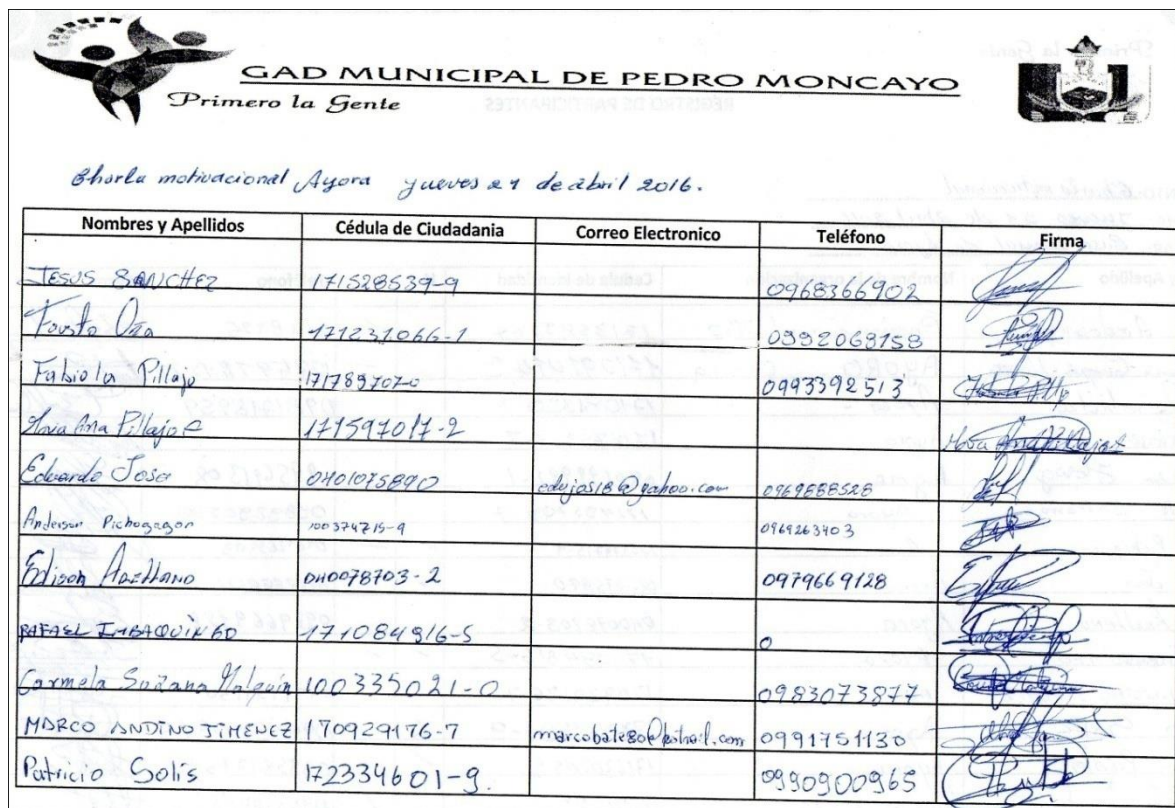 GAD MUNICIPAL DE PEDRO MONCAYO
Primero la Gente
REGISTRO DE PARTICIPANTES
Charla motivacional Ayora jueves 21 de abril 2016.
Nombres y Apellidos Cédula de Ciudadania Correo Electronico Teléfono Firma
JESUS SANCHEZ 171528539-9 0968366902
Fausto Oza 171231066-1 0992069158
Fabiola Pillajo 171789707-0 0993392513
Ana Pillajo 171597017-2
Eduardo Josa 0401075890 edujos18@yahoo.com 0969888528
Anderson Pichogagon 100374715-9 0969263403
Edison Arellano 040078703-2 0979669128
RAFAEL IMBAQUINGO 171084916-5 0
Carmela Suzana Holguin 100335021-0 0983073877
MARCO ANDINO JIMENEZ 170929176-7 0991751130
Patricio Solis 172334601-9. 0990900965